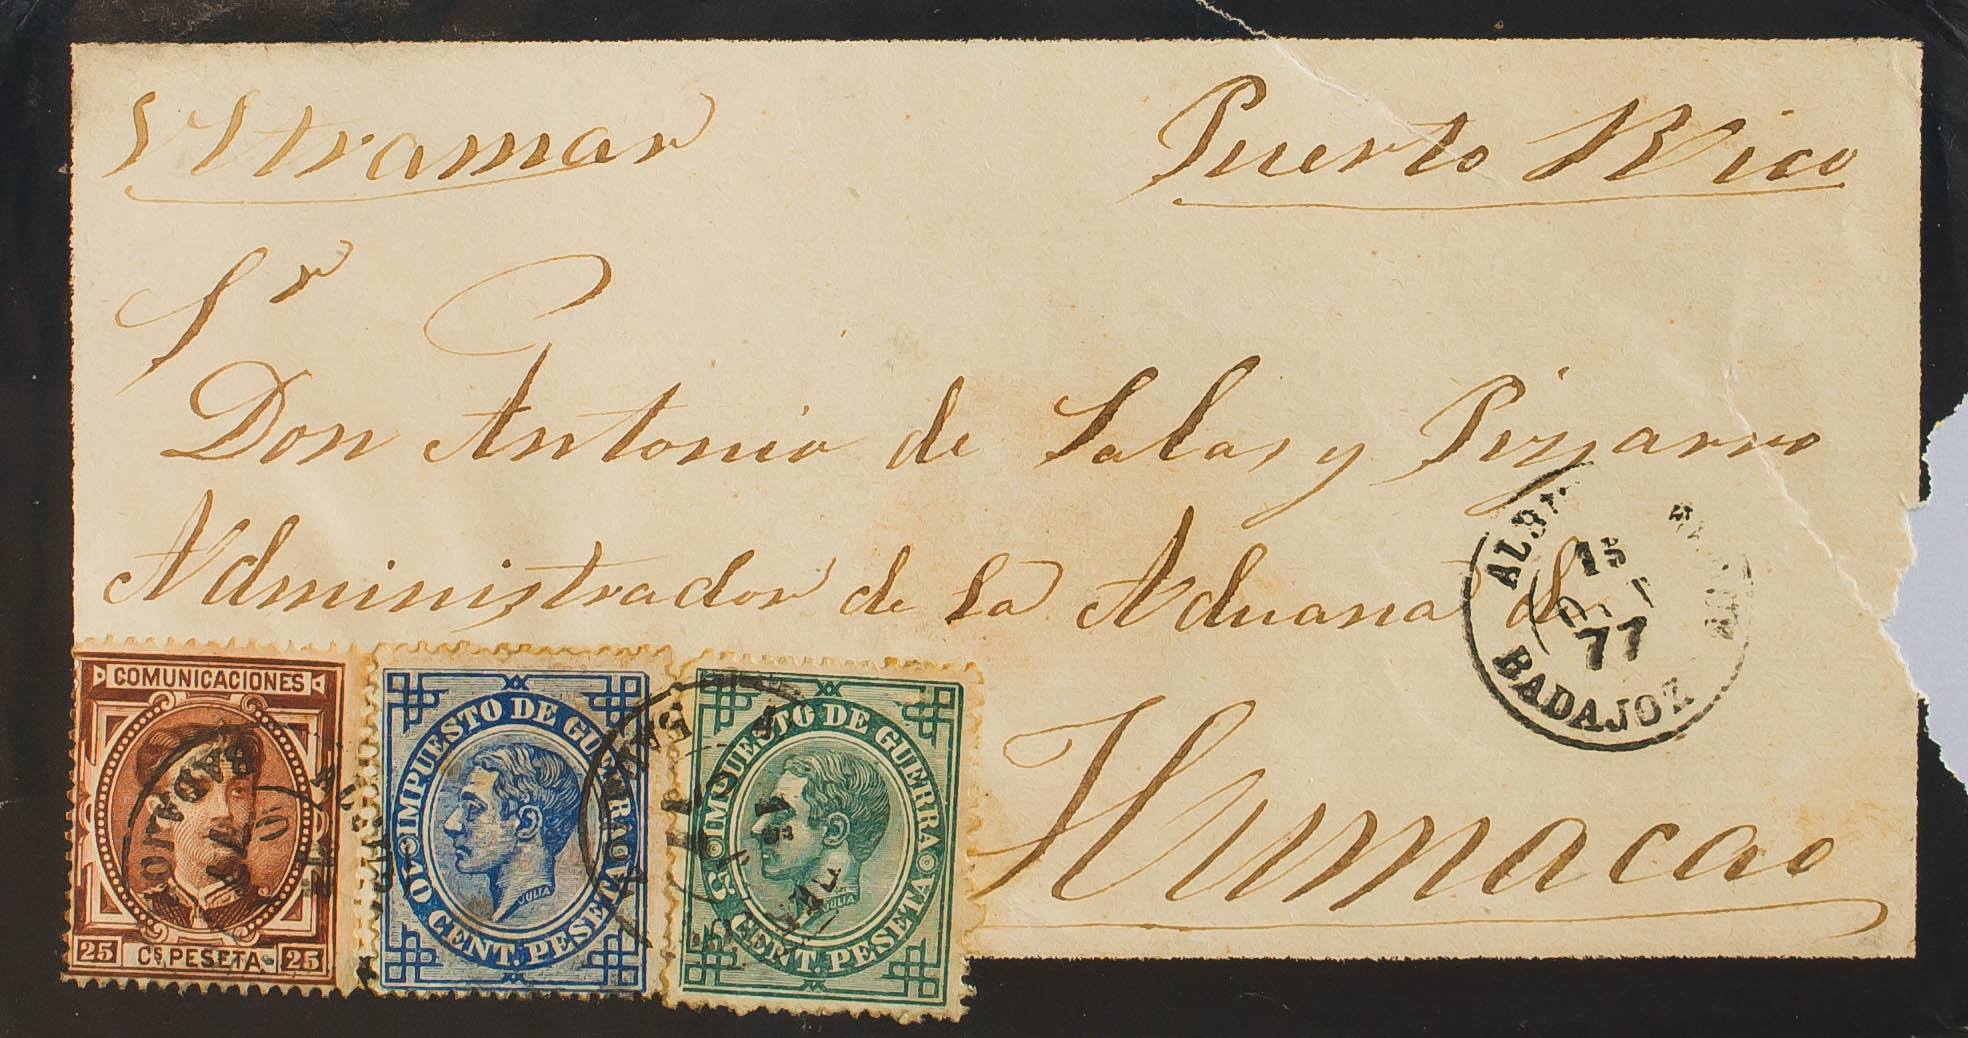 Ultramar Puerto Rico
Sr
Don Antonio de Salas y Pizarro
Administrador de la Aduana de
Humacao
15
77
BADAJOZ
COMUNICACIONES
25 Cs. PESETA. 25
BADAJOZ
77
IMPUESTO DE GUERRA
10 CENT. PESETA
JULIA
IMPUESTO DE GUERRA
5 CENT. PESETA
JULIA